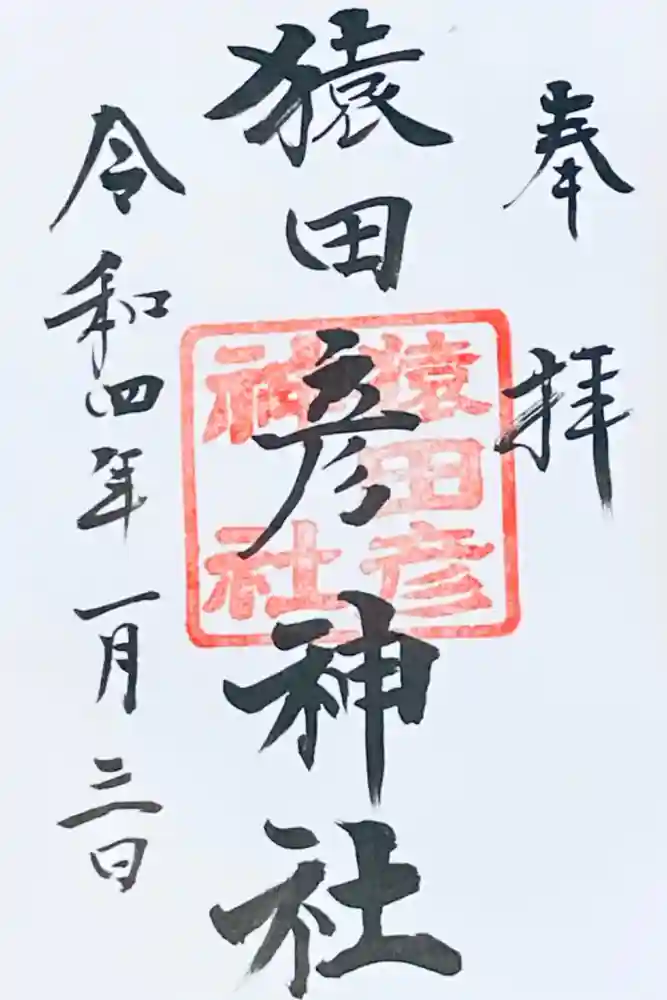 奉拝
猿田彦神社
猿田彦
神社
令和四年一月三日